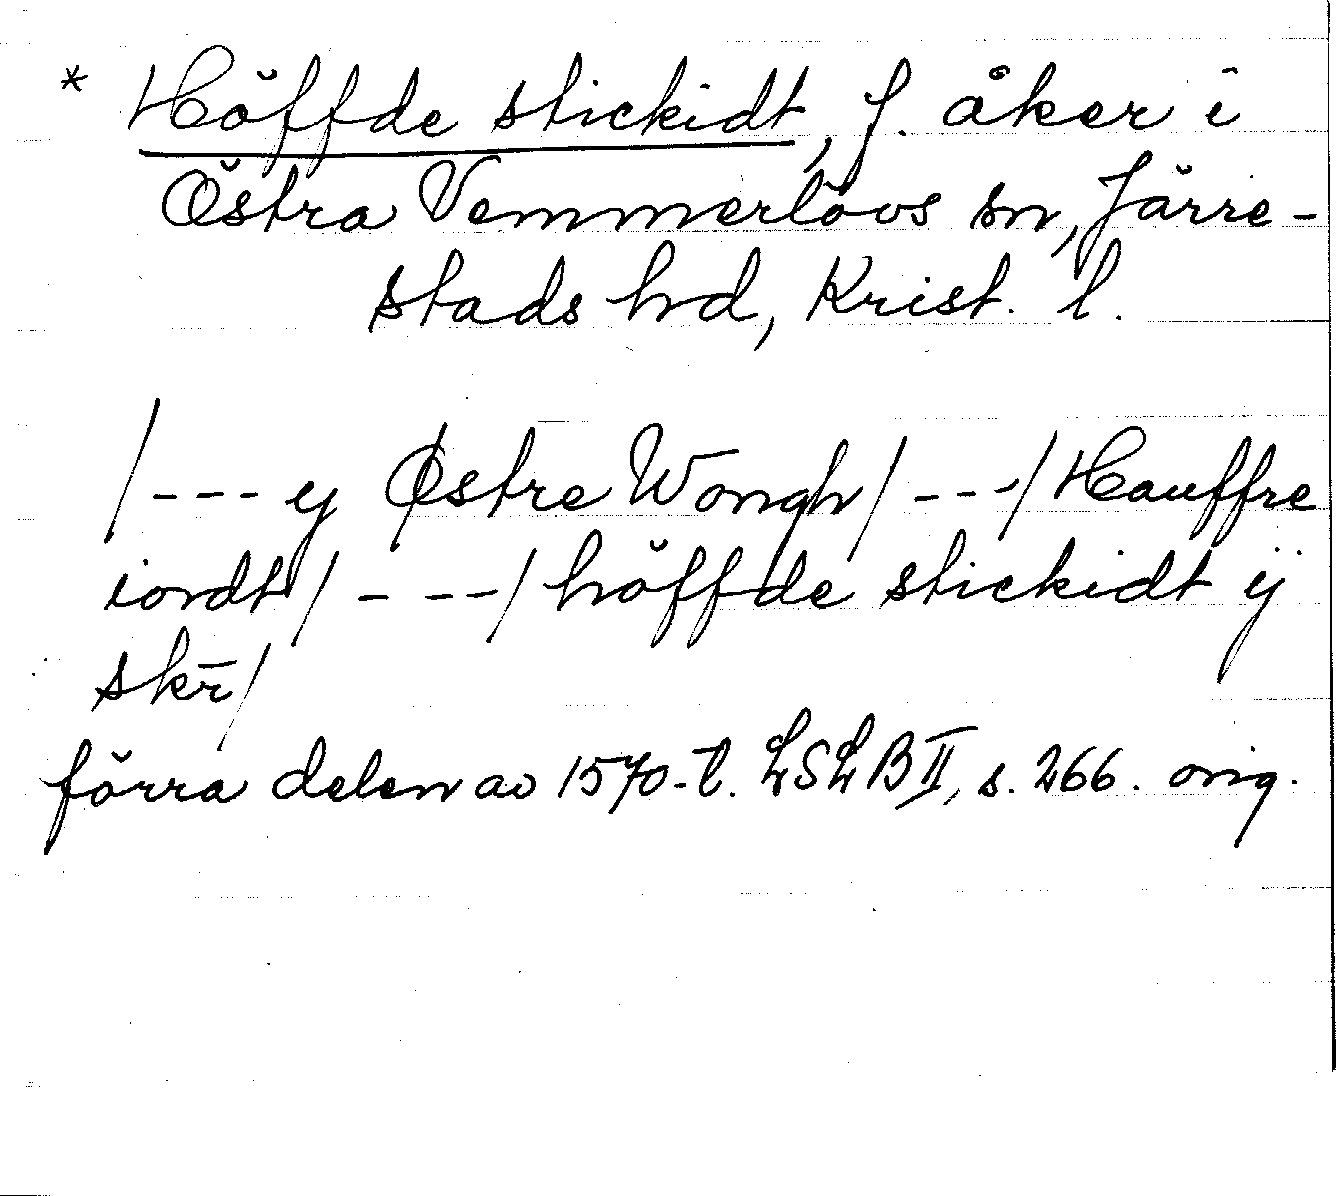 * Höffde stickidt, f. åker i
Östra Vemmerlövs sn, Järre-
stads hd, Krist. l.
/--- y Østre Wongh/---/Hauffre
iordt/---/höffde stickidt ÿ
skr̄/
förra delen av 1570-t. LSLB II, s. 266. orig.